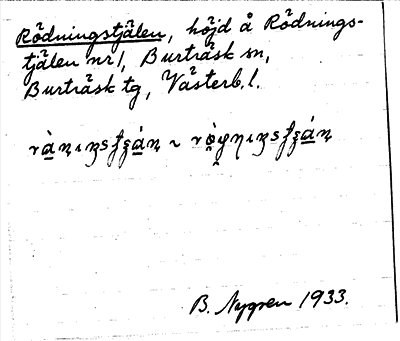 Rödningstjälen, höjd å Rödnings-
tjälen nr 1, Burträsk sn,
Burträsk tg, Västerb. l.
B. Nygren 1933.